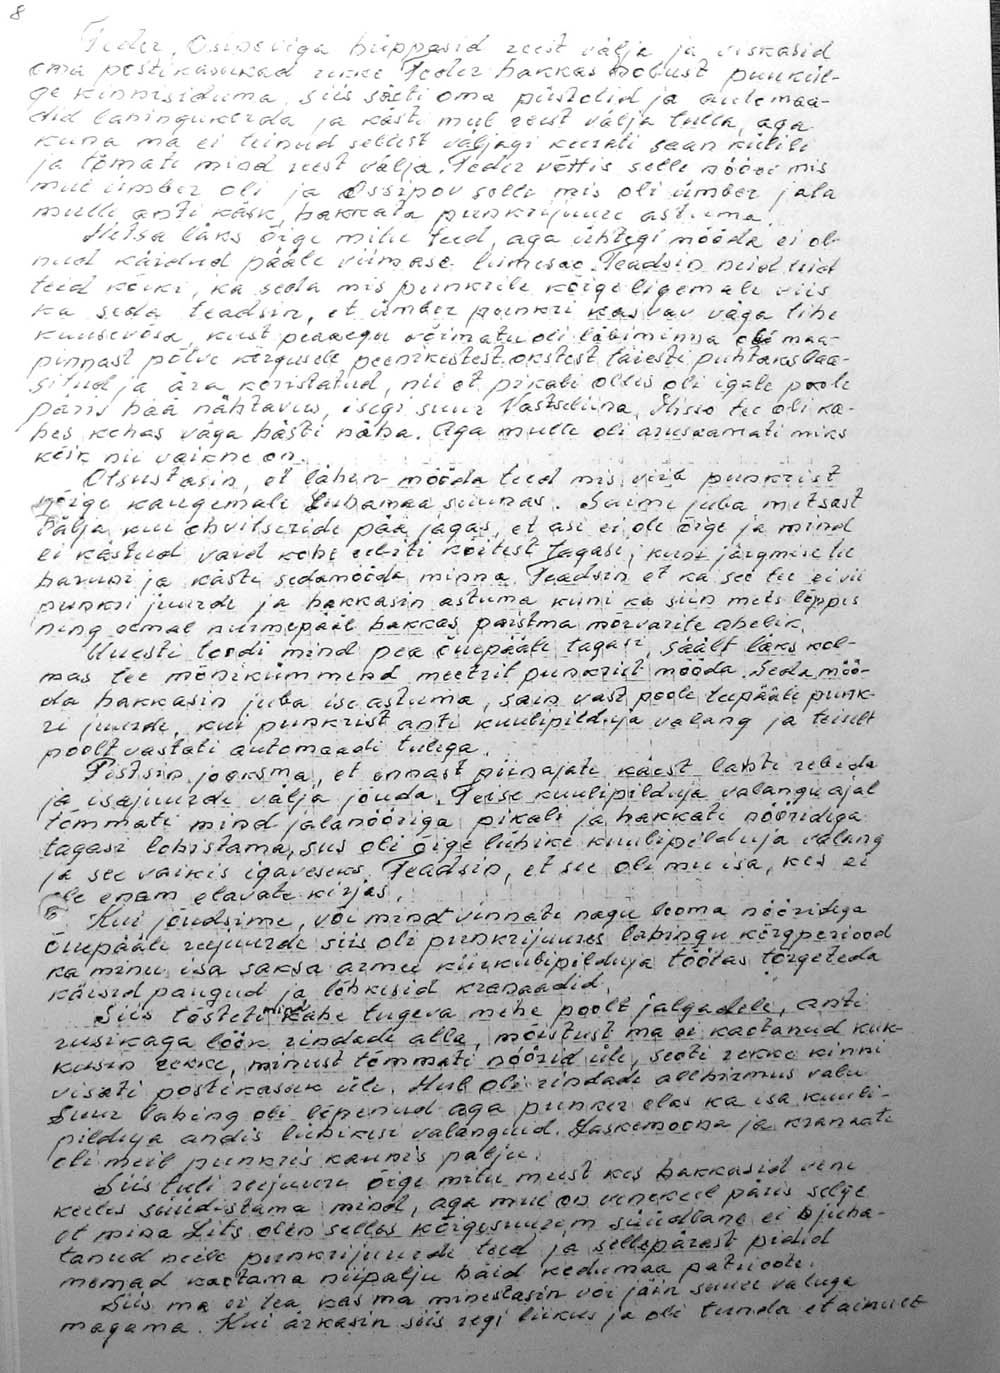 8
Feder, Osipoviga hüppasid reest välja ja viskasid
oma postikasukad rekke Feder hakkas hobust puukül-
ge kinnisiduma, siis säeti oma püstolid ja automaa-
did lahingukorda ja kästi mul reest välja tulla, aga
kuna ma ei teinud sellest väljagi keerati saan külili
ja tõmmati mind reest välja. Feder võttis selle nööri mis
mul ümber oli ja Ossipov selle mis oli ümber jala
mulle anti käsk, hakkata punkrijuure astuma.
Metsa läks õige mitu teed, aga ühtegi mööda ei ol-
nud käidud pääle viimase lumesao. Teadsin neid
teid kõiki, ka seda mis punkrile kõige ligemale viis
ka seda teadsin, et ümber punkri kasvav väga tihe
kuusevõsa, kust peaaegu võimatu oli läbiminna oli maa-
pinnast põlve kõrgusele peenikestest okstest täiesti puhtaks laa-
situd ja ära koristatud, nii et pikali olles oli igale poole
päris hää nähtavus, isegi suur Vastseliina, Misso tee oli ka-
hes kohas väga hästi näha. Aga mulle oli arusaamati miks
kõik nii vaikne on.
Otsustasin, et lähen mööda teed mis viib punkrist
kõige kaugemale Luhamaa suunas. Saime juba metsast
välja kui ohvitseride pää jagas, et asi ei ole õige ja mind
ei kästud vaid kohe veeti köitest tagasi, kuni järgmise tee
haruni ja kästi sedamööda minna. Teadsin et ka see tee ei vii
punkri juurde ja hakkasin astuma kuni ka siin mets lõppes
ning eemal nurmepääl hakkas paistma morvarite ahelik.
Uuesti toodi mind pea õuepääle tagasi, säält läks kol-
mas tee mõnikümmend meetrit punkrist mööda. Seda möö-
da hakkasin juba ise astuma, sain vast poole teepääle punk-
ri juurde, kui punkrist anti kuulipilduja valang ja teiselt
poolt vastati automaadi tulega.
Pistsin jooksma, et ennast piinajate käest lahti rebida
ja isajuurde välja jõuda. Teise kuulipilduja valangu ajal
tõmmati mind jalanööriga pikali ja hakkati nööridega
tagasi lohistama, siis oli õige lühike kuulipilduja valang
ja see vaikis igaveseks. Teadsin, et see oli mu isa, kes ei
ole enam elavate kirjas.
Kui jõudsime, või mind vinnati nagu looma nööridega
õuepääle reejuurde siis oli punkrijuures lahingu kõrgperiood
ka minu isa saksa armee kiirkuulipilduja töötas tõrgeteda
käisid paugud ja lõhkesid kranaadid.
Siis tõsteti mind kahe tugeva mehe poolt jalgadele, anti
rusikaga löök rindade alla, mõistust ma ei kaotanud kuk-
kusin rekke, minust tõmmati nöörid üle, seoti rekke kinni
visati postikasuk üle. Mul oli rindade all hirmus valu
Suur lahing oli lõpenud aga punker elas ka isa kuuli-
pilduja andis lühikesi valanguid. Laskemoona ja kranaate
oli meil punkris kaunis palju.
Siis tuli reejuure õige mitu meest kes hakkasid vene
keeles süüdistama mind, aga mul on venekeel päris selge
et mina Lits olen selles kõigesuurem süüdlane ei juha-
tanud neile punkrijuurde teed ja sellepärast pidid
nemad kaotama niipalju häid kodumaa patrioote.
Siis ma ei tea kas ma minestasin või jäin suure valuga
magama. Kui ärkasin siis regi liikus ja oli tunda et ainult